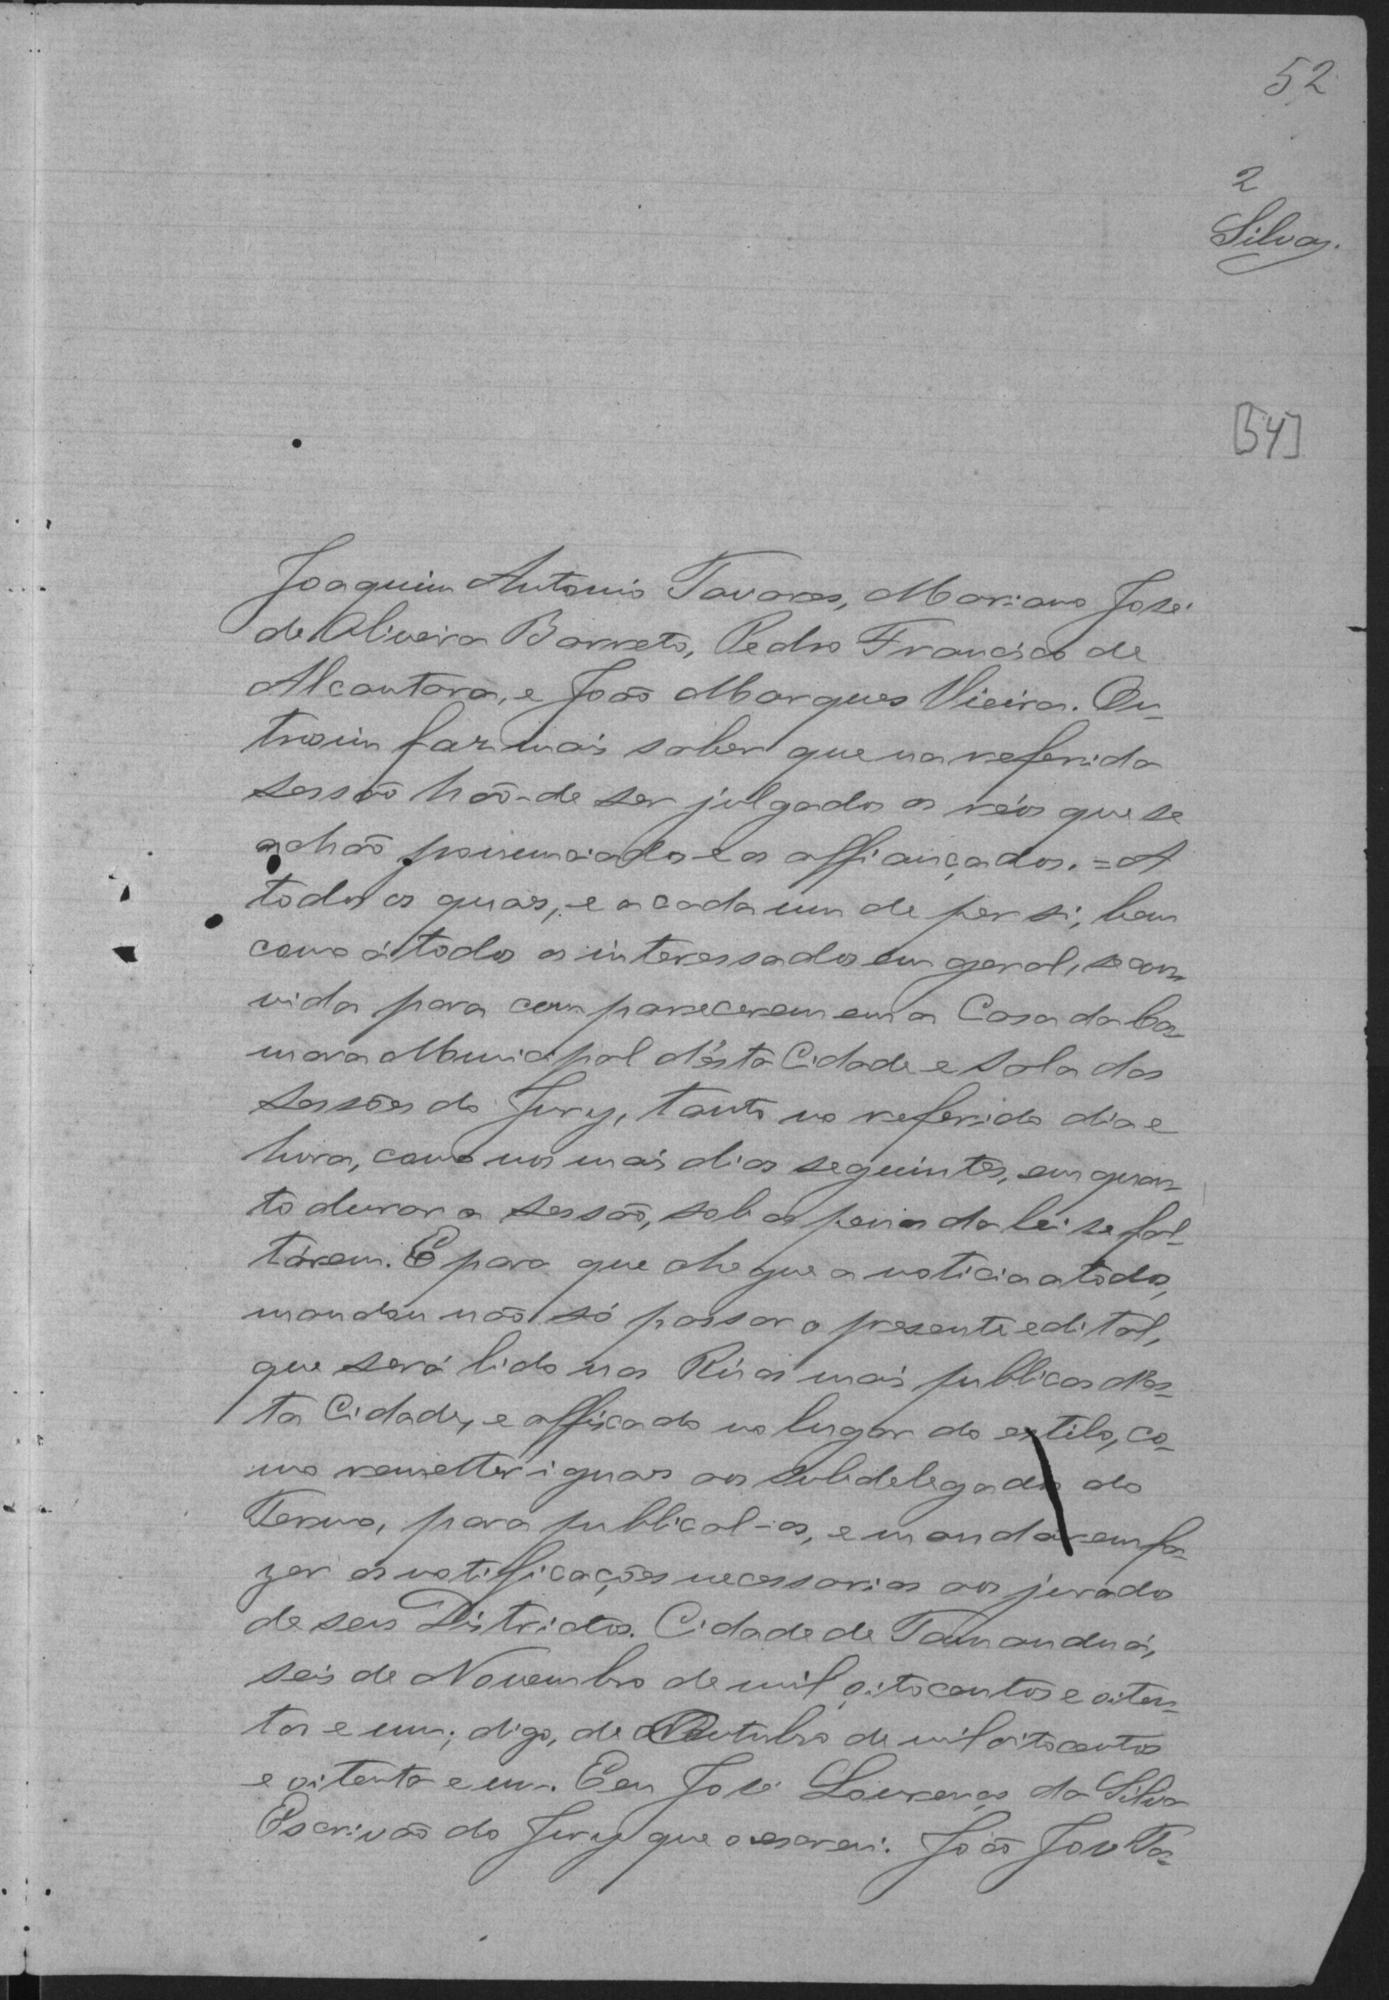 52
2
Silva.
[54]
Joaquim Antonio Tavares, Mariano José
de Oliveira Barreto, Pedro Francisco de
Alcantara, e João Marques Vieira. Ou-
trosim faz mais saber que na referida
sessão hão-de ser julgados os réos que se
achão pronunciados e os affiançados. = A
todos os quaes, e a cada um de per si, bem
como á todos os interessados em geral, se con-
vida para comparecerem em a Casa da Ca-
mara Municipal d'ésta Cidade e sala das
sessões do Jury, tanto no referido dia e
hora, como nos mais dias seguintes, em quan-
to durar a sessão, sob as penas da lei se fal-
tárem. E para que chegue a noticia a todos,
mandou não só passar o presente edital,
que será lido nas Rúas mais publicas d'es-
ta Cidade, e affixado no lugar do estilo, co-
mo remetter iguaes aos subdelegados do
Termo, para publical-os, e mandarem fa-
zer as notificações necessarias aos jurados
de seus Districtos. Cidade de Tamanduá,
seis de Novembro de mil oitocentos e oiten-
ta e um; digo, de Outubro de mil oitocentos
e oitenta e um. E eu José Lourenço da Silva
Escrivão do Jury que o escrevi. João José Ta-